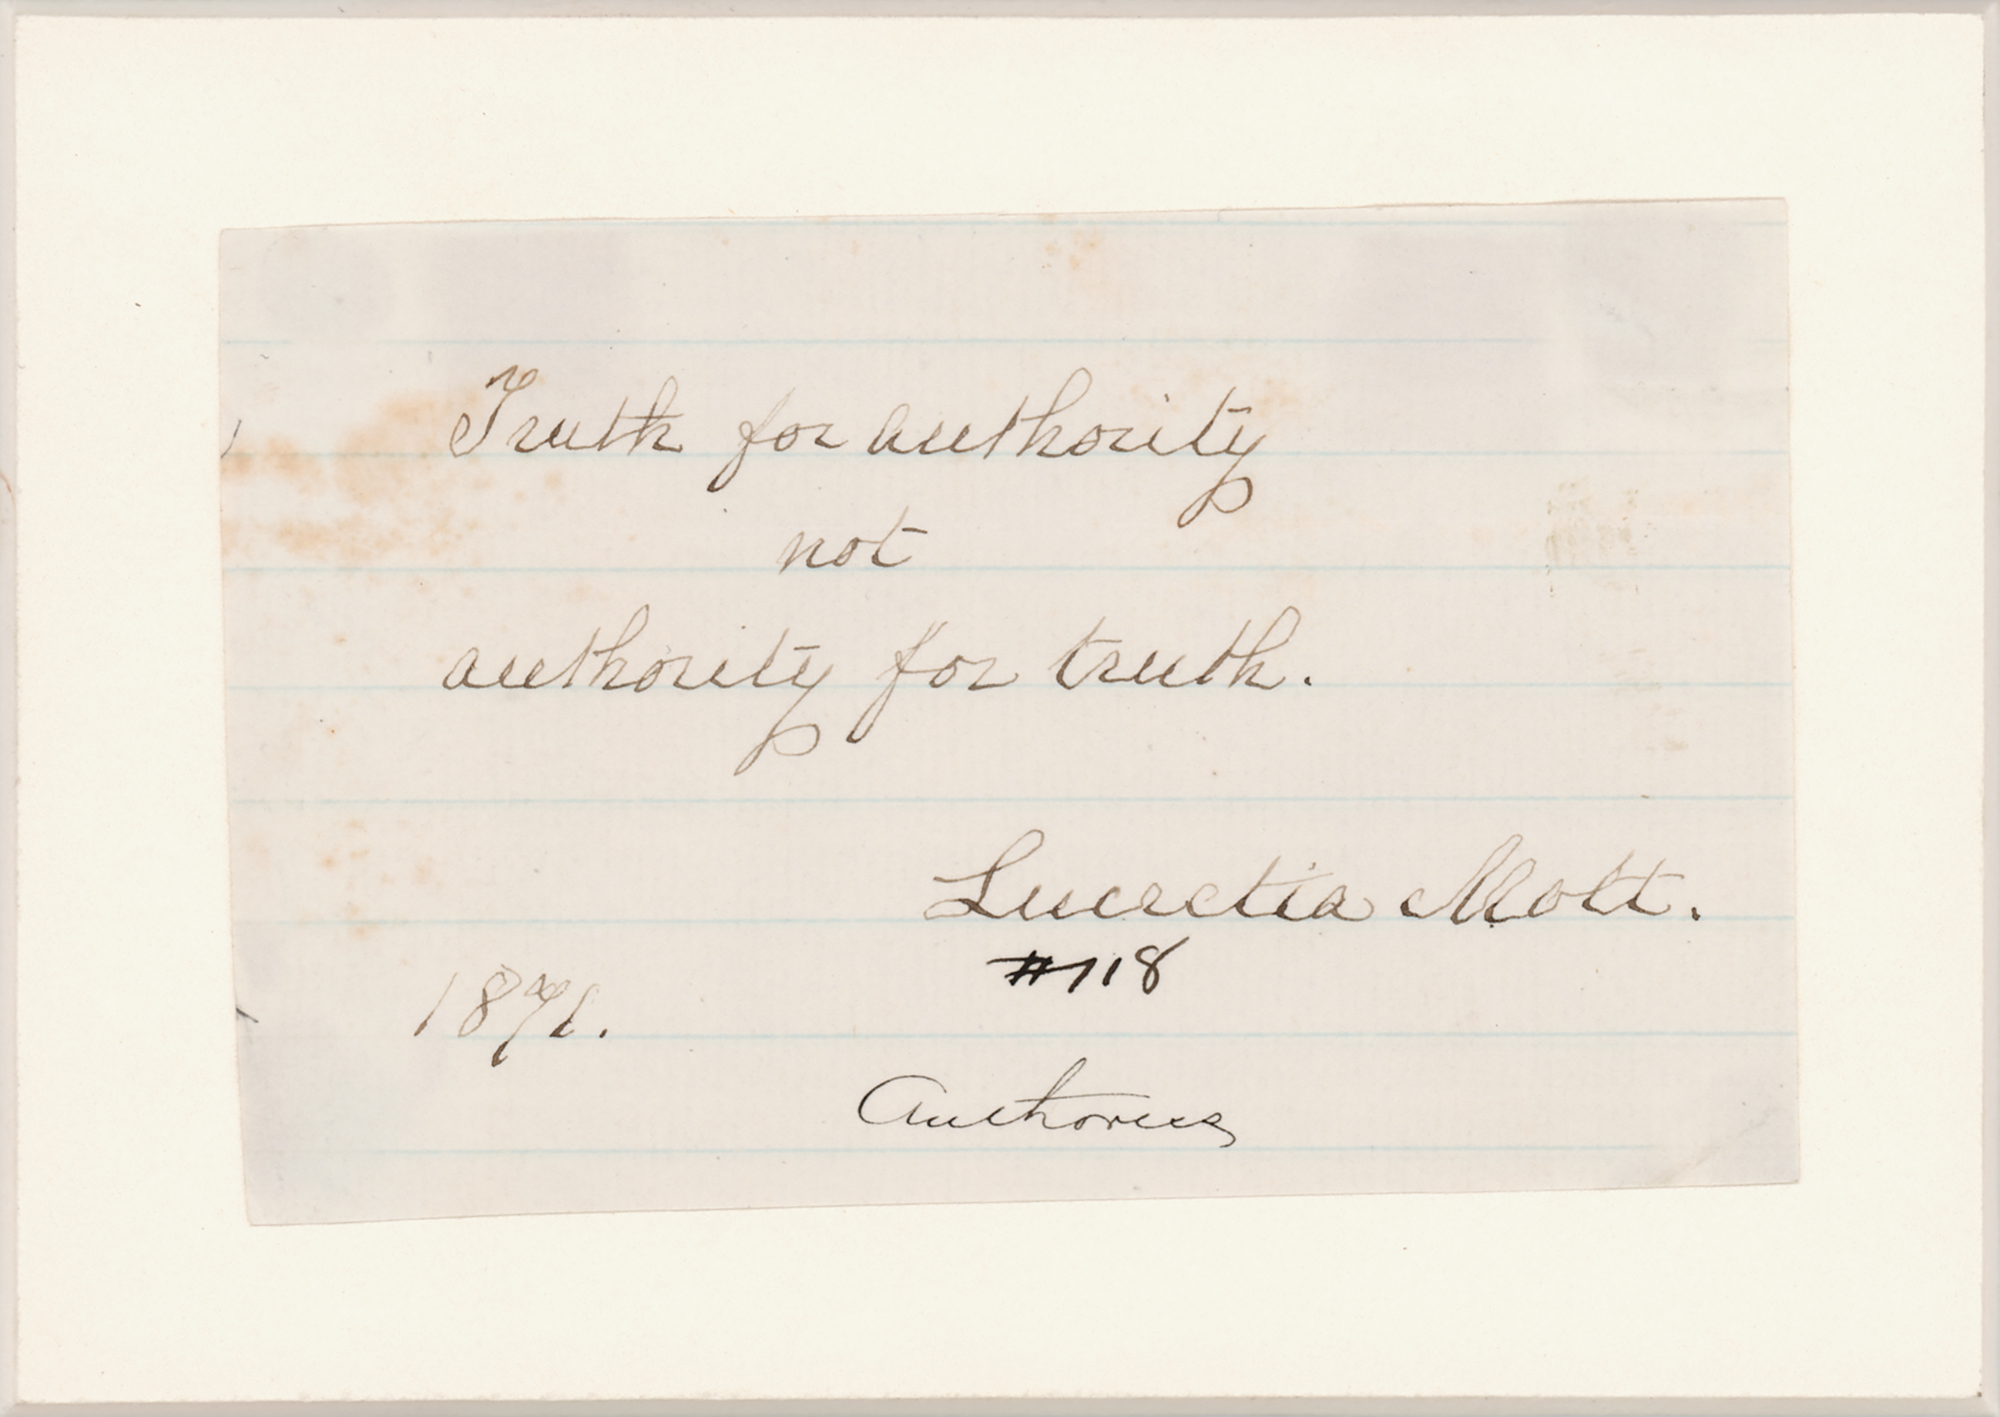 Truth for authority
not
authority for truth.
Lucretia Mott.
#718
1871.
Authoress